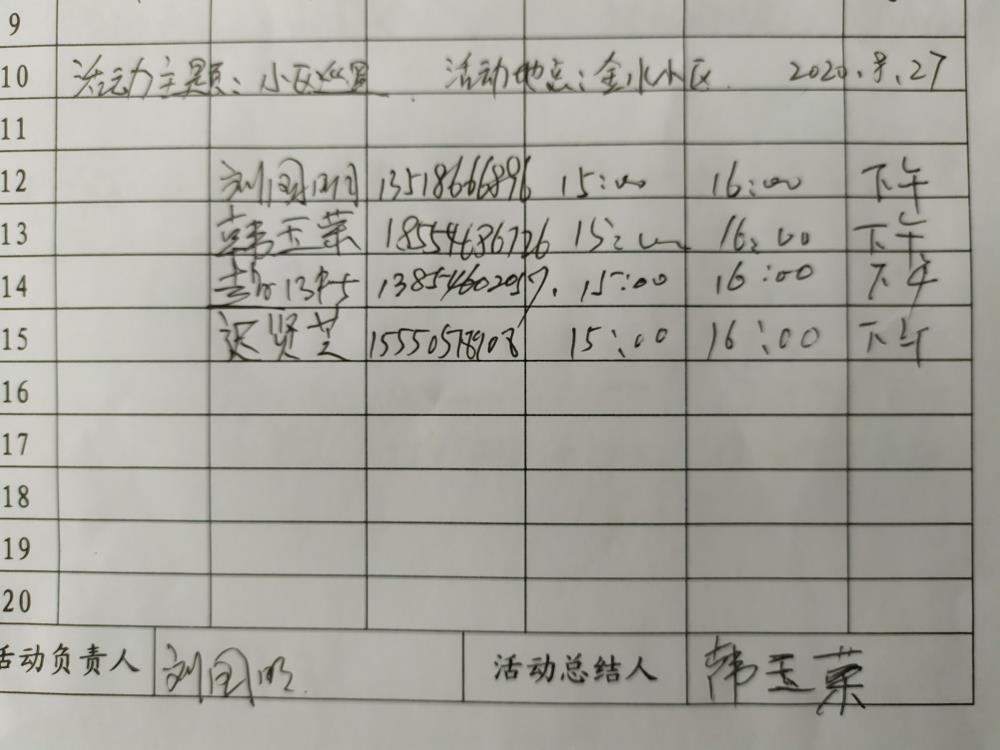 9
10 活动主题：小区巡逻 活动地点：金水小区 2020.8.27
11
12 刘国明 13518666896 15:00 16:00 下午
13 韩玉荣 18554686726 15:00 16:00 下午
14 13854602057. 15:00 16:00 下午
15 迟贤芝 15550578908 15:00 16:00 下午
16
17
18
19
20
活动负责人 刘国明 活动总结人 韩玉荣